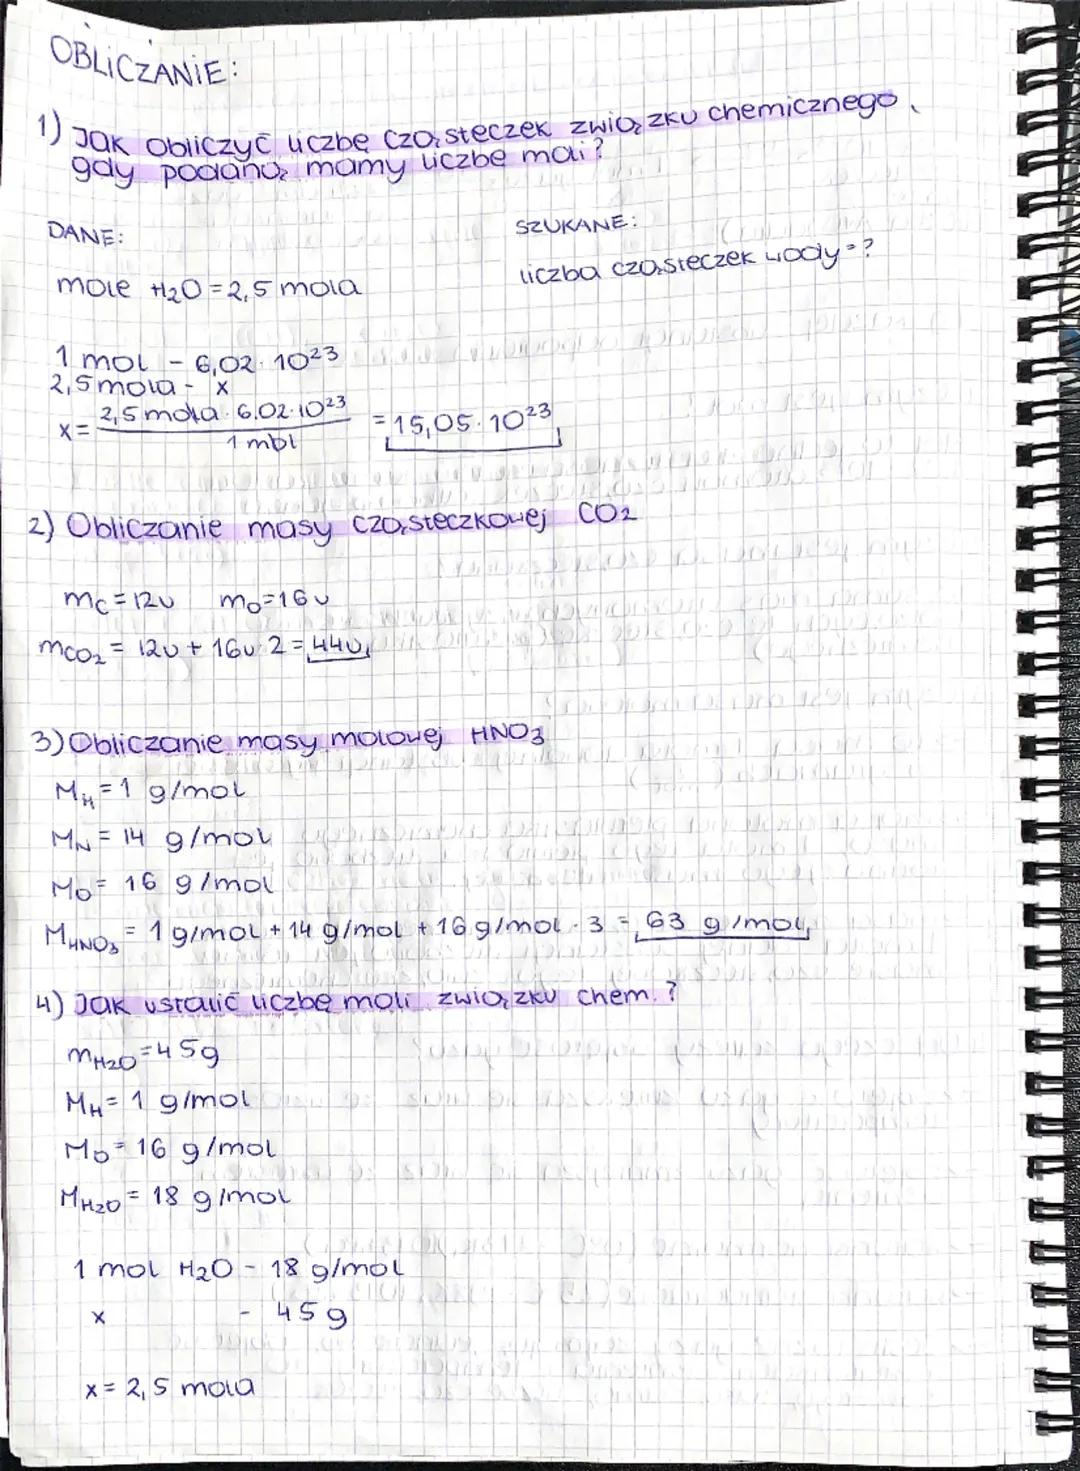 OBLICZANIE:
1) Jak obliczyć liczbę cząsteczek związku chemicznego,
gdy podaną mamy liczbę moli?
DANE:
SZUKANE:
mole H₂O = 2,5 mola
liczba cząsteczek wody = ?
1 mol - 6,02 · 10²³
2,5 mola - x
x = 2,5 mola · 6.02·10²³ / 1 mol = 15,05 · 10²³
2) Obliczanie masy cząsteczkowej CO₂
mC = 12u mO = 16u
mCO₂ = 12u + 16u · 2 = 44u
3) Obliczanie masy molowej HNO₃
MH = 1 g/mol
MN = 14 g/mol
MO = 16 g/mol
MHNO₃ = 1 g/mol + 14 g/mol + 16 g/mol · 3 = 63 g/mol
4) Jak ustalić liczbę moli związku chem.?
mH₂O = 45g
MH = 1 g/mol
MO = 16 g/mol
MH₂O = 18 g/mol
1 mol H₂O - 18 g/mol
x - 45g
x = 2,5 mola